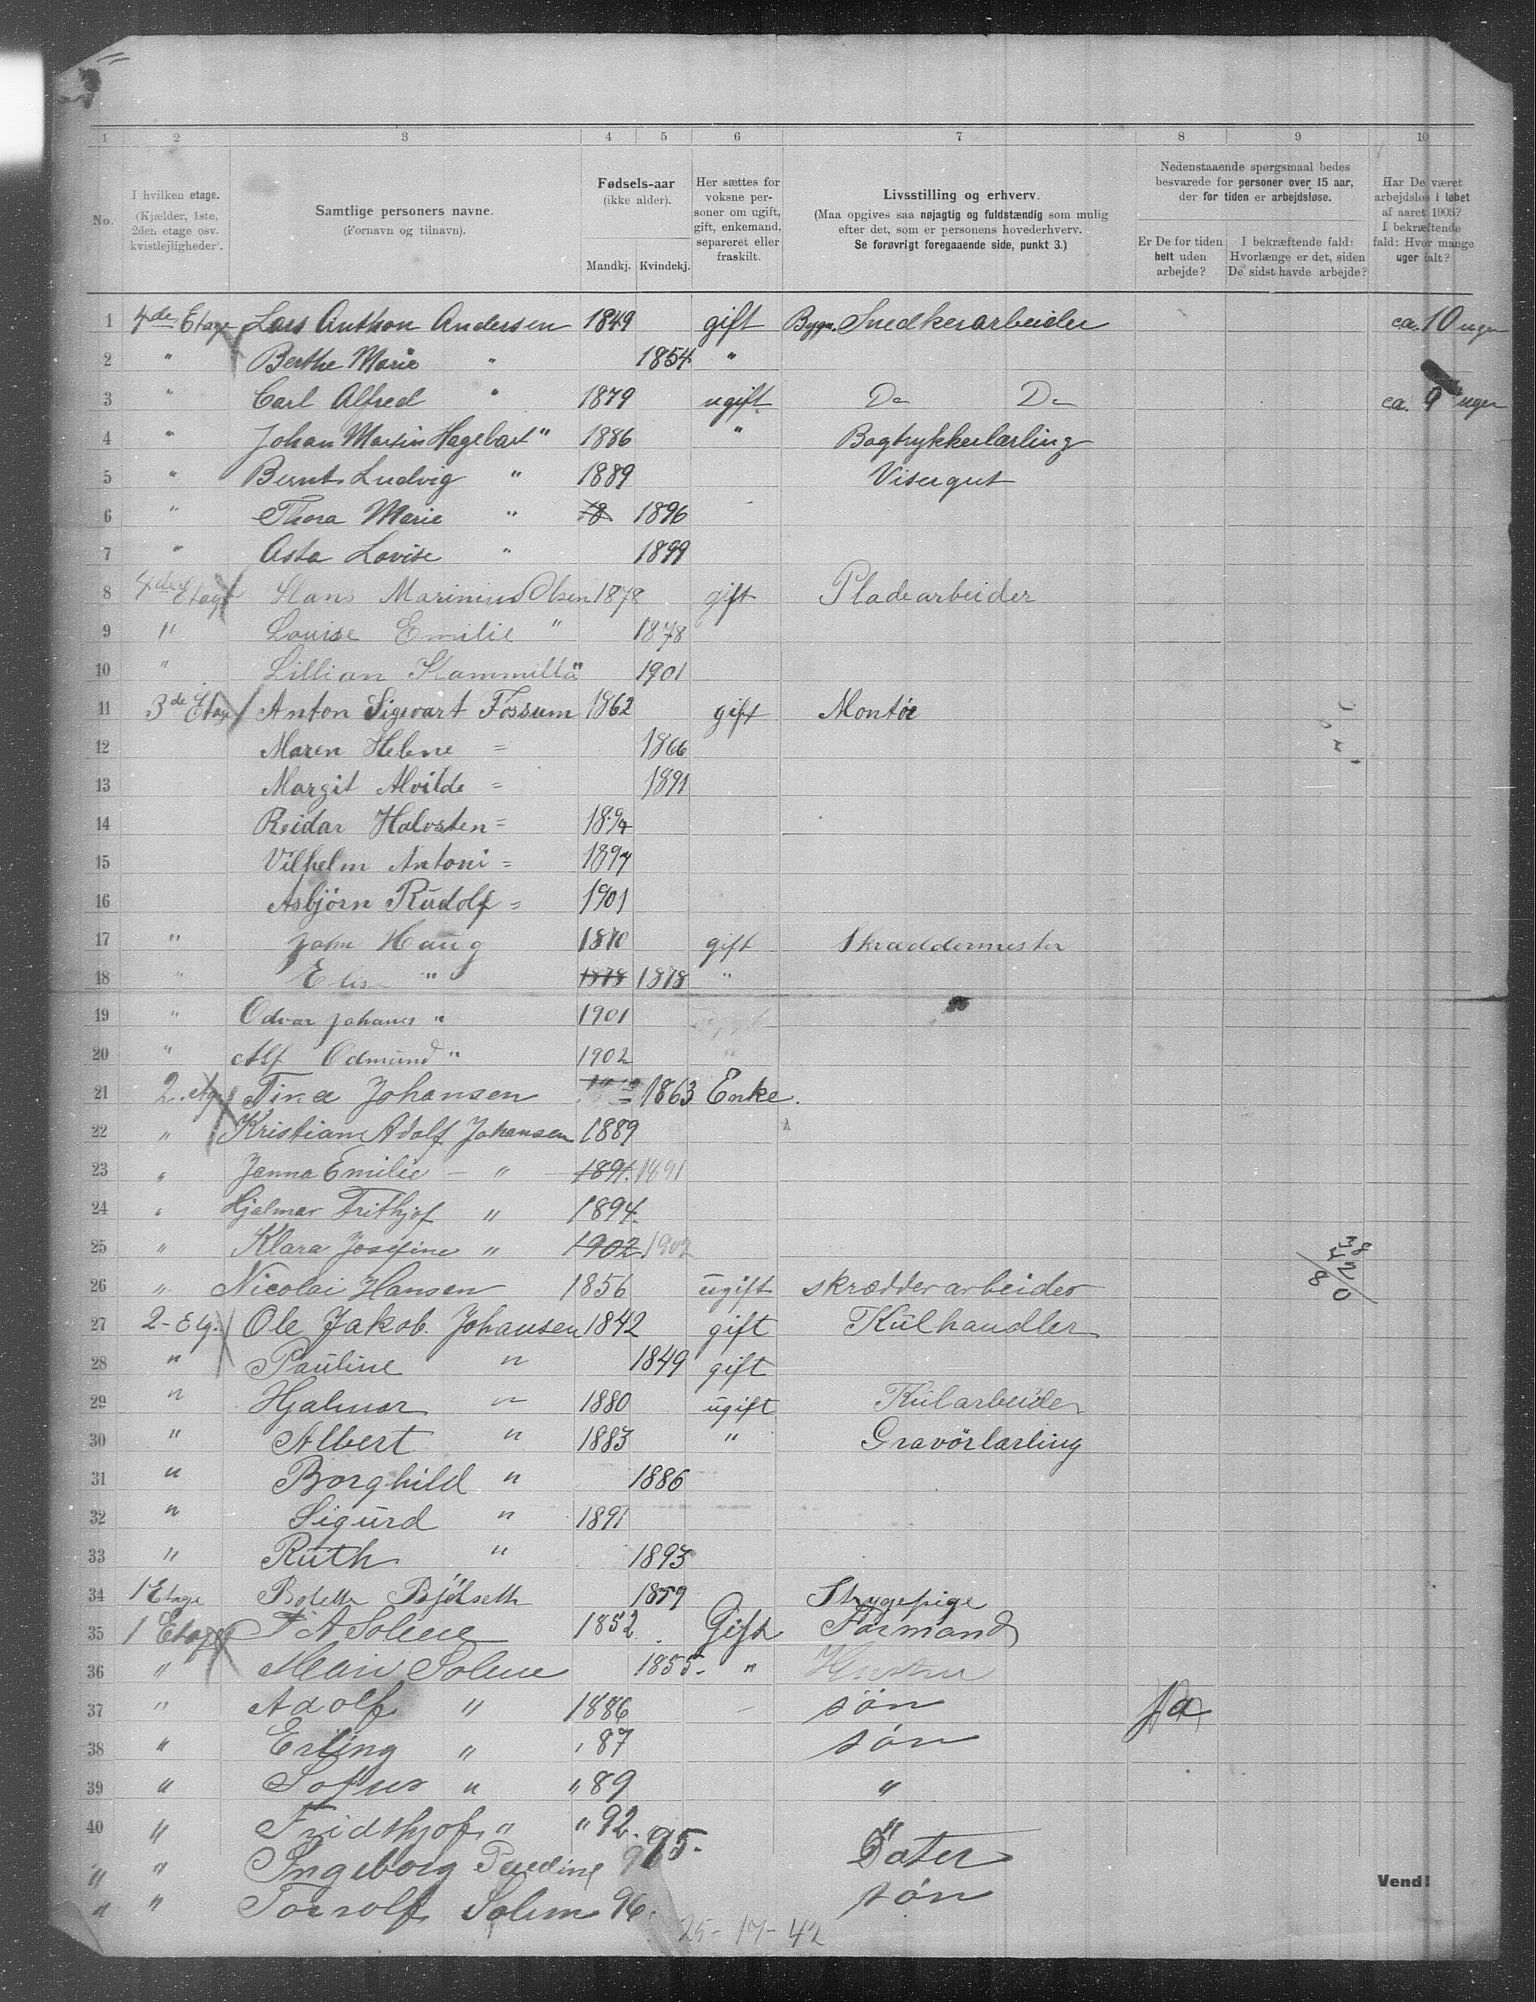 1 2 3 4 5 6 7 8 9 10
No.
I hvilken etage.
(Kjælder, 1ste,
2den etage osv.
kvistlejligheder.
Samtlige personers navne.
(Fornavn og tilnavn).
Fødsels-aar
(ikke alder).
Mandkj. Kvindekj.
Her sættes for
voksne per-
soner om ugift,
gift, enkemand,
separeret eller
fraskilt.
Livsstilling og erhverv.
(Maa opgives saa nøjagtig og fuldstændig som mulig
efter det, som er personens hovederhverv.
Se forøvrigt foregaaende side, punkt 3.)
Nedenstaaende spørgsmaal bedes
besvarede for personer over 15 aar,
der for tiden er arbejdsløse.
Er De for tiden
helt uden
arbejde?
I bekræftende fald:
Hvorlænge er det, siden
De sidst havde arbejde?
Har De været
arbejdsløs i løbet
af aaret 1903?
I bekræftende
fald: Hvor mange
uger ialt?
1 4de Etage Lars Anthon Andersen 1849 gift Bygn. Snedkerarbeider ca. 10 uger
2 " Berthe Marie " 1854 "
3 " Carl Alfred " 1879 ugift Do Do ca. 9 uger
4 " Johan Martin Hagebart " 1886 " Bogtrykkerlærling
5 " Bernt Ludvig " 1889 Visergut
6 " Thora Marie " 18 1896
7 " Asta Lovise " 1899
8 4de Etage Hans Marinius Olsen 1878 gift Pladearbeider
9 " Louise Emilie " 1878
10 " Lillian Kammilla " 1901
11 3de Etage Anton Sigevart Fossum 1862 gift Montør
12 Maren Helene = 1866
13 Margit Alvilde = 1891
14 Reidar Halvsten = 1894
15 Vilhelm Antoni = 1897
16 Asbjörn Rudolf = 1901
17 " John Haug 1870 gift Skræddermester
18 " Elise " 1878 1878 "
19 " Odvar Johanes " 1901
20 " Alf Odmund " 1902
21 2. etg. Tina Johansen 1863 Enke.
22 " Kristian Adolf Johansen 1889
23 " Janna Emilie - " - 1891. 1891
24 " Hjalmar Frithjof " 1894.
25 " Klara Josefine " 1902 1902
26 " Nicolai Hansen 1856 ugift skrædderarbeider
27 2-Etg. Ole Jakob Johansen 1842 gift Kulhandler
28 " Pauline " 1849 gift
29 " Hjalmar " 1880 ugift Kularbeider
30 " Albert " 1883 " Gravörlærling
31 " Borghild " 1886
32 " Sigurd " 1891
33 " Ruth " 1893
34 1 Etage Bolette Bjölseth 1859 Strygepige
35 1 Etage A Solem 1852 Gift Formand
36 " Mari Solem 1855 - " Hustru
37 " Adolf " 1886 søn Ja
38 " Erling " " 87 søn
39 " Sofus " " 89 "
40 " Fridthjof " " 92. "
" " Ingeborg Pauline 95. Dater
" " Torrolf Solem 96. søn
Vend!
25-17-42